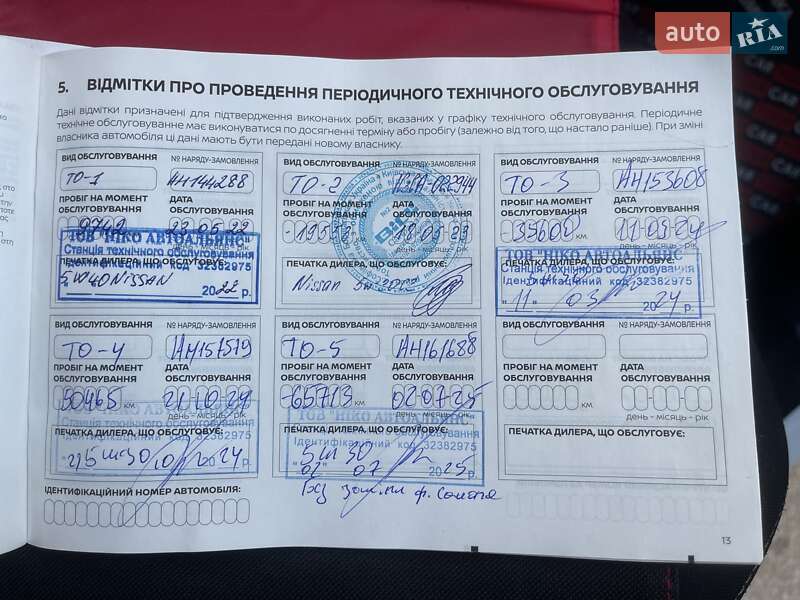 auto RIA.com
5. ВІДМІТКИ ПРО ПРОВЕДЕННЯ ПЕРІОДИЧНОГО ТЕХНІЧНОГО ОБСЛУГОВУВАННЯ
Дані відмітки призначені для підтвердження виконаних робіт, вказаних у графіку технічного обслуговування. Періодичне
технічне обслуговуванне має виконуватися по досягненні терміну або пробігу (залежно від того, що настало раніше). При зміні
власника автомобіля ці дані мають бути передані новому власнику.
ВИД ОБСЛУГОВУВАННЯ № НАРЯДУ-ЗАМОВЛЕННЯ
ТО-1 АН144288
ПРОБІГ НА МОМЕНТ ОБСЛУГОВУВАННЯ ДАТА ОБСЛУГОВУВАННЯ
23 05 22
ТОВ "НІКО АВТОАЛЬЯНС"
Станція технічного обслуговування
Ідентифікаційний код 32382975
5W40 NISSAN
2022 р.
ВИД ОБСЛУГОВУВАННЯ № НАРЯДУ-ЗАМОВЛЕННЯ
ТО-2
ПРОБІГ НА МОМЕНТ ОБСЛУГОВУВАННЯ ДАТА ОБСЛУГОВУВАННЯ
км день - місяць - рік
ПЕЧАТКА ДИЛЕРА, ЩО ОБСЛУГОВУЄ:
Nissan
ВИД ОБСЛУГОВУВАННЯ № НАРЯДУ-ЗАМОВЛЕННЯ
ТО-3 АН153608
ПРОБІГ НА МОМЕНТ ОБСЛУГОВУВАННЯ ДАТА ОБСЛУГОВУВАННЯ
35600 11 03 24
км день - місяць - рік
ТОВ "НІКО АВТОАЛЬЯНС"
Станція технічного обслуговування
Ідентифікаційний код 32382975
"11" 03 2024 р.
ВИД ОБСЛУГОВУВАННЯ № НАРЯДУ-ЗАМОВЛЕННЯ
ТО-4 АН157579
ПРОБІГ НА МОМЕНТ ОБСЛУГОВУВАННЯ ДАТА ОБСЛУГОВУВАННЯ
50465 21 10 24
км день - місяць - рік
ТОВ "НІКО АВТОАЛЬЯНС"
Станція технічного обслуговування
ПЕЧАТКА ДИЛЕРА, ЩО ОБСЛУГОВУЄ:
Ідентифікаційний код 32382975
2024 р.
ВИД ОБСЛУГОВУВАННЯ № НАРЯДУ-ЗАМОВЛЕННЯ
ТО-5 АН161688
ПРОБІГ НА МОМЕНТ ОБСЛУГОВУВАННЯ ДАТА ОБСЛУГОВУВАННЯ
65713 02 07 25
км день - місяць - рік
ТОВ "НІКО АВТОАЛЬЯНС"
ПЕЧАТКА ДИЛЕРА, ЩО ОБСЛУГОВУЄ:
Ідентифікаційний код 32382975
5W30
"02" 07 2025 р.
Без заміни ф. Салона
ВИД ОБСЛУГОВУВАННЯ № НАРЯДУ-ЗАМОВЛЕННЯ
ПРОБІГ НА МОМЕНТ ОБСЛУГОВУВАННЯ ДАТА ОБСЛУГОВУВАННЯ
км день - місяць - рік
ПЕЧАТКА ДИЛЕРА, ЩО ОБСЛУГОВУЄ:
ІДЕНТИФІКАЦІЙНИЙ НОМЕР АВТОМОБІЛЯ:
13